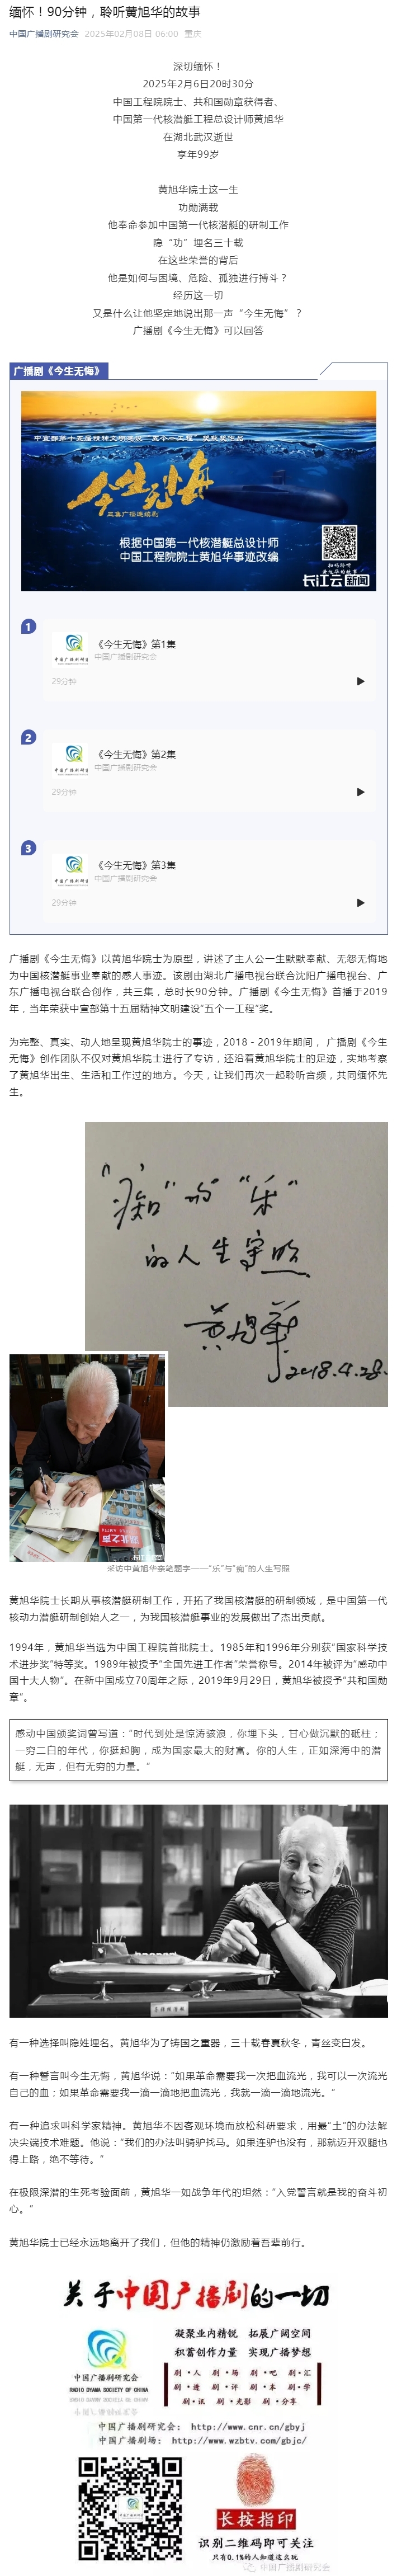 缅怀！90分钟，聆听黄旭华的故事
中国广播剧研究会 2025年02月08日 06:00 重庆
深切缅怀！
2025年2月6日20时30分
中国工程院院士、共和国勋章获得者、
中国第一代核潜艇工程总设计师黄旭华
在湖北武汉逝世
享年99岁
黄旭华院士这一生
功勋满载
他奉命参加中国第一代核潜艇的研制工作
隐“功”埋名三十载
在这些荣誉的背后
他是如何与困境、危险、孤独进行搏斗？
经历这一切
又是什么让他坚定地说出那一声“今生无悔”？
广播剧《今生无悔》可以回答
广播剧《今生无悔》
中宣部第十五届精神文明建设“五个一工程”奖获奖作品
今生无悔
三集广播连续剧
根据中国第一代核潜艇总设计师
中国工程院院士黄旭华事迹改编
长江云新闻
1
《今生无悔》第1集
中国广播剧研究会
29分钟
2
《今生无悔》第2集
中国广播剧研究会
29分钟
3
《今生无悔》第3集
中国广播剧研究会
29分钟
广播剧《今生无悔》以黄旭华院士为原型，讲述了主人公一生默默奉献、无怨无悔地
为中国核潜艇事业奉献的感人事迹。该剧由湖北广播电视台联合沈阳广播电视台、广
东广播电视台联合创作，共三集，总时长90分钟。广播剧《今生无悔》首播于2019
年，当年荣获中宣部第十五届精神文明建设“五个一工程”奖。
为完整、真实、动人地呈现黄旭华院士的事迹，2018－2019年期间， 广播剧《今生
无悔》创作团队不仅对黄旭华院士进行了专访，还沿着黄旭华院士的足迹，实地考察
了黄旭华出生、生活和工作过的地方。今天，让我们再次一起聆听音频，共同缅怀先
生。
“痴”的“乐”
的人生写照
黄旭华
2018.4.28.
采访中黄旭华亲笔题字——“乐”与“痴”的人生写照
黄旭华院士长期从事核潜艇研制工作，开拓了我国核潜艇的研制领域，是中国第一代
核动力潜艇研制创始人之一，为我国核潜艇事业的发展做出了杰出贡献。
1994年，黄旭华当选为中国工程院首批院士。1985年和1996年分别获“国家科学技
术进步奖”特等奖。1989年被授予“全国先进工作者”荣誉称号。2014年被评为“感动中
国十大人物”。在新中国成立70周年之际，2019年9月29日，黄旭华被授予“共和国勋
章”。
感动中国颁奖词曾写道：“时代到处是惊涛骇浪，你埋下头，甘心做沉默的砥柱；
一穷二白的年代，你挺起胸，成为国家最大的财富。你的人生，正如深海中的潜
艇，无声，但有无穷的力量。”
有一种选择叫隐姓埋名。黄旭华为了铸国之重器，三十载春夏秋冬，青丝变白发。
有一种誓言叫今生无悔，黄旭华说：“如果革命需要我一次把血流光，我可以一次流光
自己的血；如果革命需要我一滴一滴地把血流光，我就一滴一滴地流光。”
有一种追求叫科学家精神。黄旭华不因客观环境而放松科研要求，用最“土”的办法解
决尖端技术难题。他说：“我们的办法叫骑驴找马。如果连驴也没有，那就迈开双腿也
得上路，绝不等待。”
在极限深潜的生死考验面前，黄旭华一如战争年代的坦然：“入党誓言就是我的奋斗初
心。”
黄旭华院士已经永远地离开了我们，但他的精神仍激励着吾辈前行。
关于中国广播剧的一切
凝聚业内精锐 拓展广阔空间
积蓄创作力量 实现广播梦想
中国广播剧研究会
RADIO DRAMA SOCIETY OF CHINA
剧·人 剧·场 剧·吧 剧·汇
剧·迷 剧·评 剧·本 剧·学
剧·讯 剧·光影 剧·分享
中国广播剧研究会： http://www.cnr.cn/gbyj
中国广播剧场：http://www.wzbtv.com/gbjc/
长按指印
识别二维码即可关注
只有0.1%的人知道这么玩
中国广播剧研究会